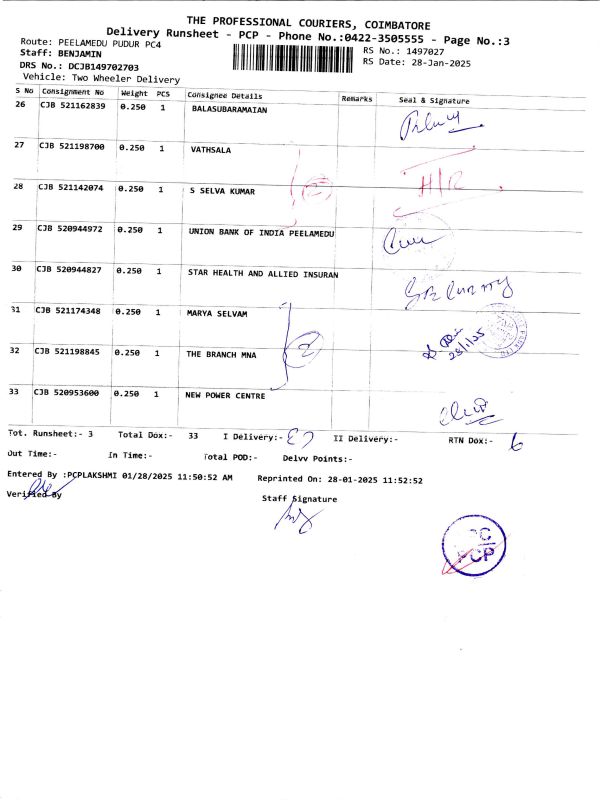 THE PROFESSIONAL COURIERS, COIMBATORE
Delivery Runsheet - PCP - Phone No.:0422-3505555 - Page No.:3
Route: PEELAMEDU PUDUR PC4
RS No.: 1497027
Staff: BENJAMIN
RS Date: 28-Jan-2025
DRS No.: DCJB149702703
Vehicle: Two Wheeler Delivery
S No Consignment No Weight PCS Consignee Details Remarks Seal & Signature
26 CJB 521162839 0.250 1 BALASUBARAMAIAN
27 CJB 521198700 0.250 1 VATHSALA
H/R
28 CJB 521142074 0.250 1 S SELVA KUMAR
2
29 CJB 520944972 0.250 1 UNION BANK OF INDIA PEELAMEDU
30 CJB 520944827 0.250 1 STAR HEALTH AND ALLIED INSURAN
31 CJB 521174348 0.250 1 MARYA SELVAM
28/1/25
32 CJB 521198845 0.250 1 THE BRANCH MNA
2
33 CJB 520953600 0.250 1 NEW POWER CENTRE
Tot. Runsheet:- 3 Total Dox:- 33 I Delivery:- 27 II Delivery:- RTN Dox:- 6
Out Time:- In Time:- Total POD:- Delvv Points:-
Entered By :PCPLAKSHMI 01/28/2025 11:50:52 AM Reprinted On: 28-01-2025 11:52:52
Verified By
Staff Signature
PCP